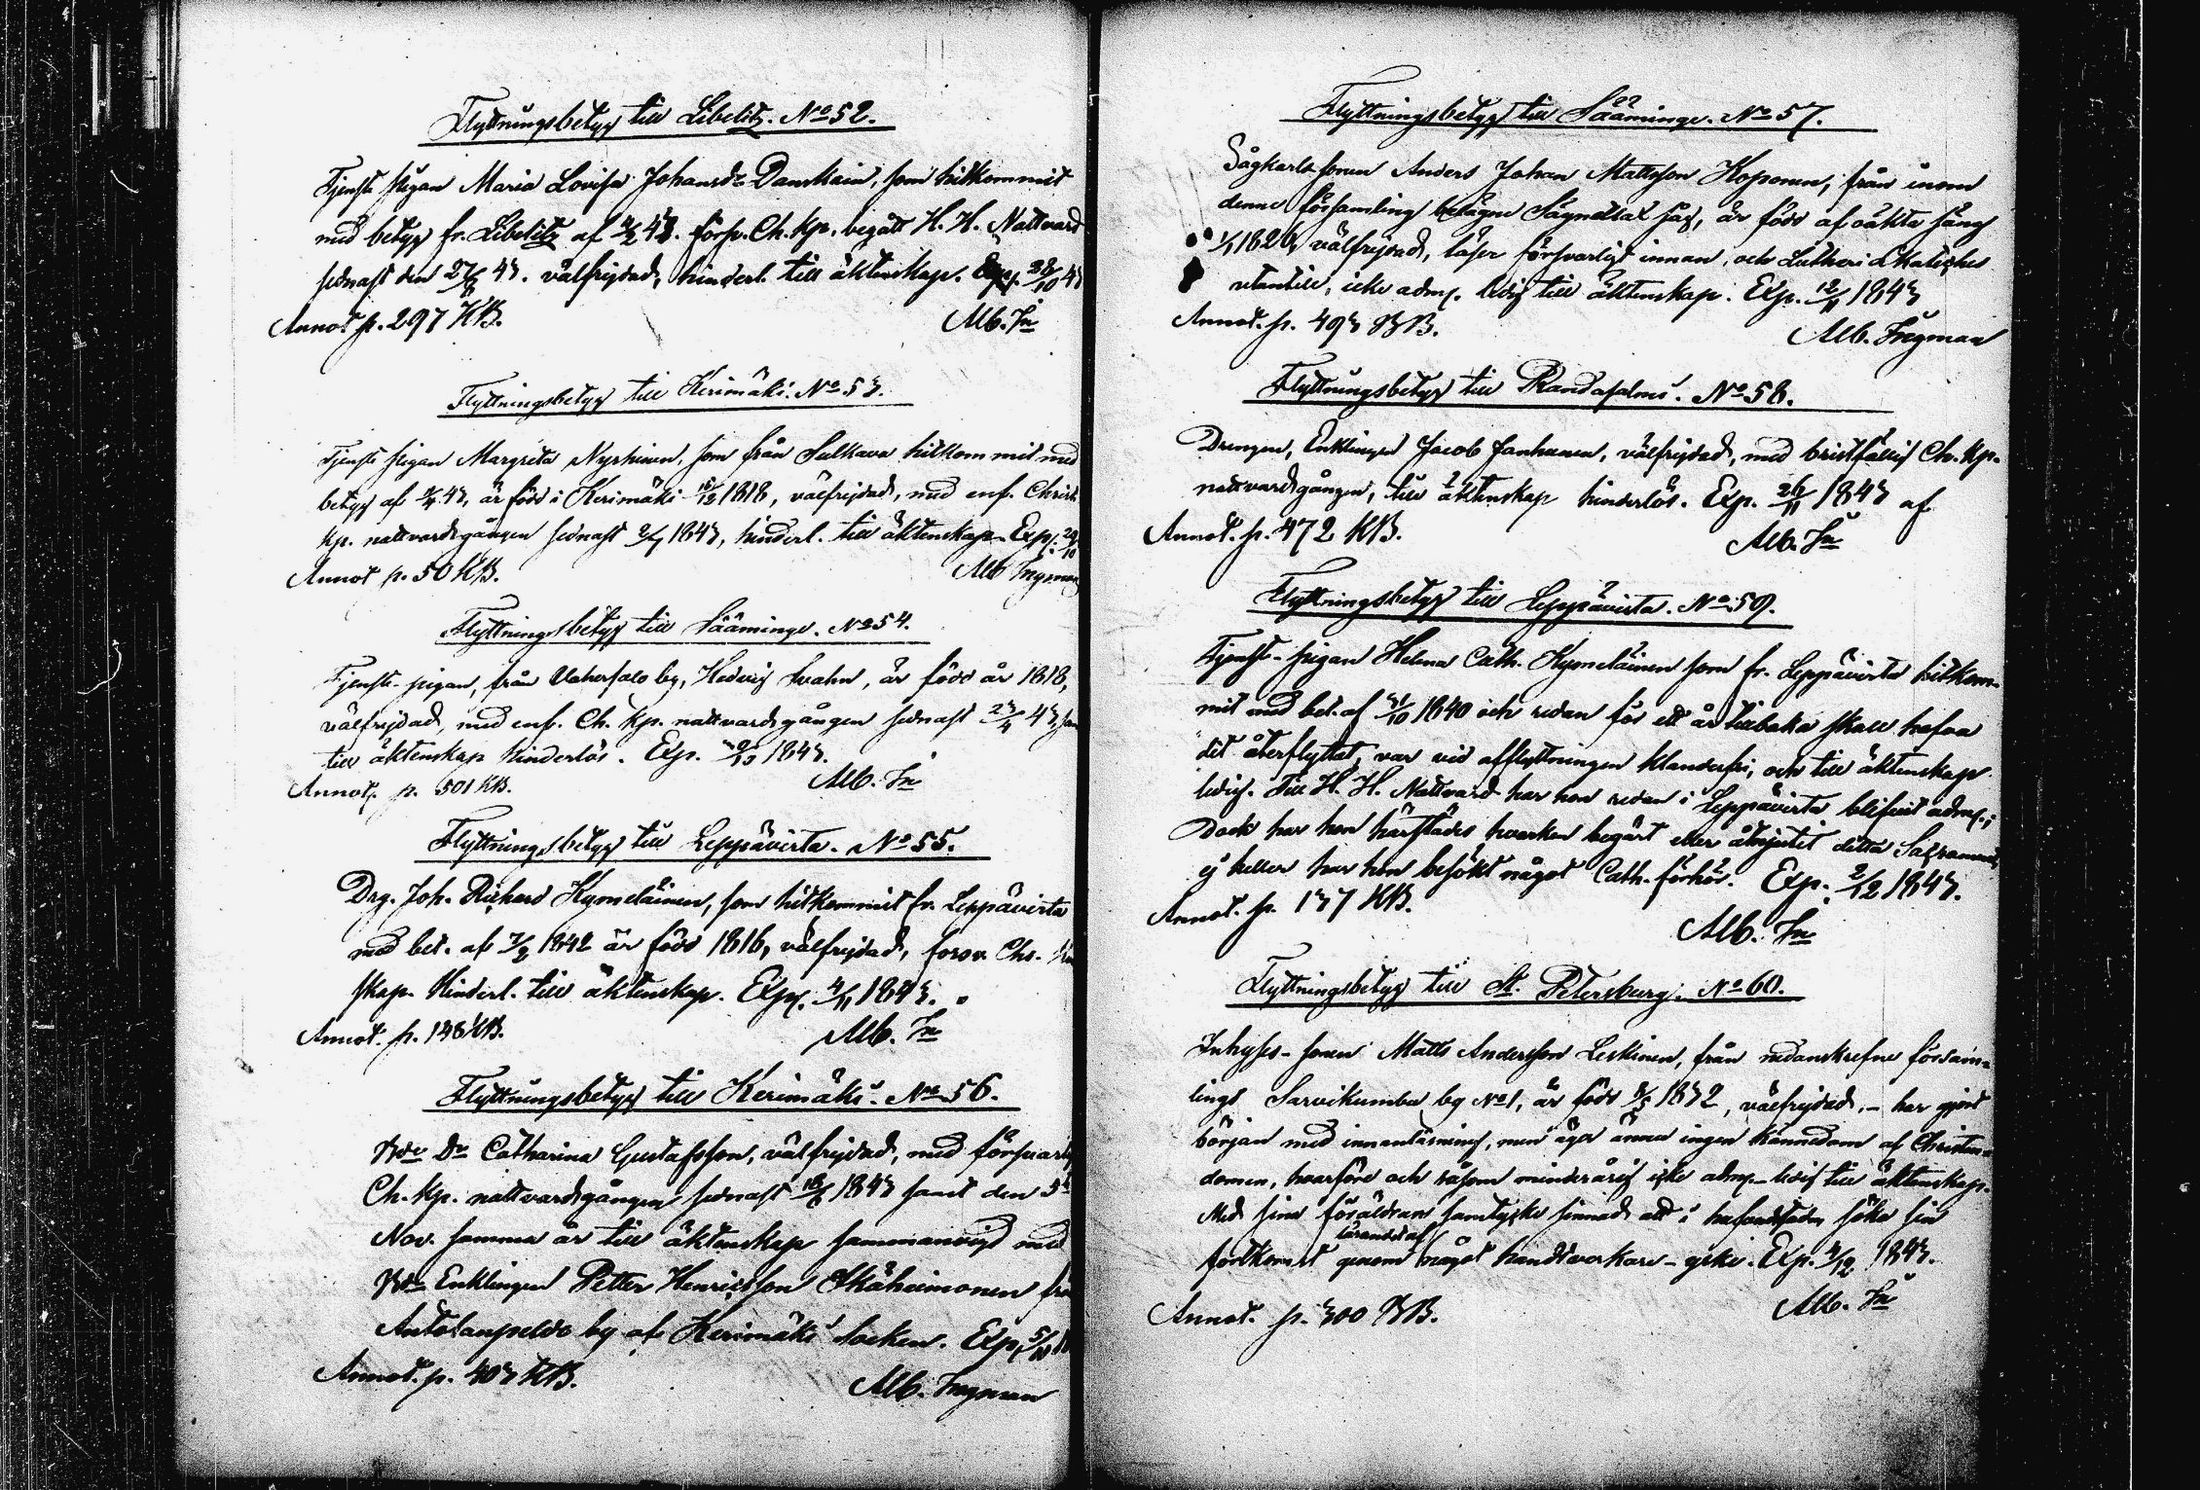 Flyttningsbetyg till Libelitz. No 52.
Tjenste pigan Maria Lovisa Johansdr Danskain, som hitkommit
med betyg fr. Libelitz af 43. försv. Ch. Kp. begått H. H. Nattvard
sednast den 43. välfrejdad, hinderl. till äktenskap. Exp. 28/10 43
Annot p. 297 KB. Alb. In
Flyttningsbetyg till Kerimäki. No 53.
Tjenste pigan Margreta Nyrhinen, som från Sulkava hitkommit med
betyg af 43, är född i Kerimäki 1818, välfrejdad, med enf. Christ.
Kp. nattvardsgången sednast 2/7 1843, hinderl. till äktenskap. Exp. 29/10
Annot p. 50 KB. Alb Ingman
Flyttningsbetyg till Sääminge. No 54.
Tjenste-pigan, från Vahersalo by, Hedvig Svahn, är född år 1818,
välfrejdad, med enf. Ch. Kp. nattvardsgången sednast 23/4 43 samt
till äktenskap hinderlös. Exp. 1843.
Annot. p. 501 KB. Alb. In
Flyttningsbetyg till Leppävirta. No 55.
Drg. Joh. Richard Kymeläinen, som hitkommit fr. Leppävirta
med bet. af 1842 är född 1816, välfrejdad, försv. Chr.
skap. Hinderl. till äktenskap. Exp. 4/11 1843.
Annot. p. 148 KB. Alb. In
Flyttningsbetyg till Kerimäki. No 56.
Catharina Gustafsson, välfrejdad, med försvarlig
Ch. Kp. nattvardsgången sednast 1843 samt den 5
Nov. samma år till äktenskap sammanvigd med
Enklingen Petter Henricsson från
by af Kerimäki Socken. Exp. 5/11
Annot. p. 403 KB. Alb. Ingman
Flyttningsbetyg till Sääminge. No 57.
Sågkarls sonen Anders Johan Mattsson Koponen, från inom
denna församling belägne såg, är född af oäkta säng
välfrejdad, läser försvarligt innan, och Lutheri Cateches
utantill, icke adm. ledig till äktenskap. Exp. 12/11 1843
Annot. p. 493 KB. Alb. Ingman
Flyttningsbetyg till Randasalmi. No 58.
Drengen, Enklingen Jacob Janhunen, välfrejdad, med bristfällig Ch. Kp.
nattvardsgången, till äktenskap hinderlös. Exp. 26/11 1843 af
Annot. p. 472 KB. Alb. In
Flyttningsbetyg till Leppävirta. No 59.
Tjenste-pigan Helena Cath. Kymeläinen som fr. Leppävirta hitkom-
mit med bet. af 31/10 1840 och redan för ett år tillbaka skall hafva
dit återflyttat, var vid afflyttningen klanderfri, och till äktenskap
ledig. Till H. H. Nattvard har hon redan i Leppävirta blifvit adm.;
Dock har hon härstädes hvarken begärt eller åtnjutit detta Sacrament,
ej heller har hon besökt något Cath. förhör. Exp. 2/12 1843.
Annot. p. 137 KB. Alb. In
Flyttningsbetyg till St. Petersburg. No 60.
Inhyses-sonen Matts Andersson Leskinen, från nedanskrefne försam-
lings Sarvikumbu by No 1, är född 1832, välfrejdad, - har gjort
början med innanläsning, men äger ännu ingen kännedom af Christen-
domen, hvarföre och såsom minderårig icke adm. - ledig till äktenskap.
Med sina föräldrars samtycke sinnad att i hufvudstaden söka sin
lärandet af
fortkomst genom något handtverkare-yrke. Exp. 4/12 1843.
Annot. p. 300 KB. Alb. In